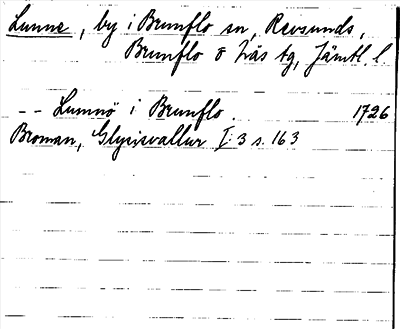 Lunne, by i Brunflo sn, Revsunds,
Brunflo o Näs tg, Jämtl. l.
-- Lumnö i Brunflo. 1726
Broman, Glysisvallur I: 3 s. 163